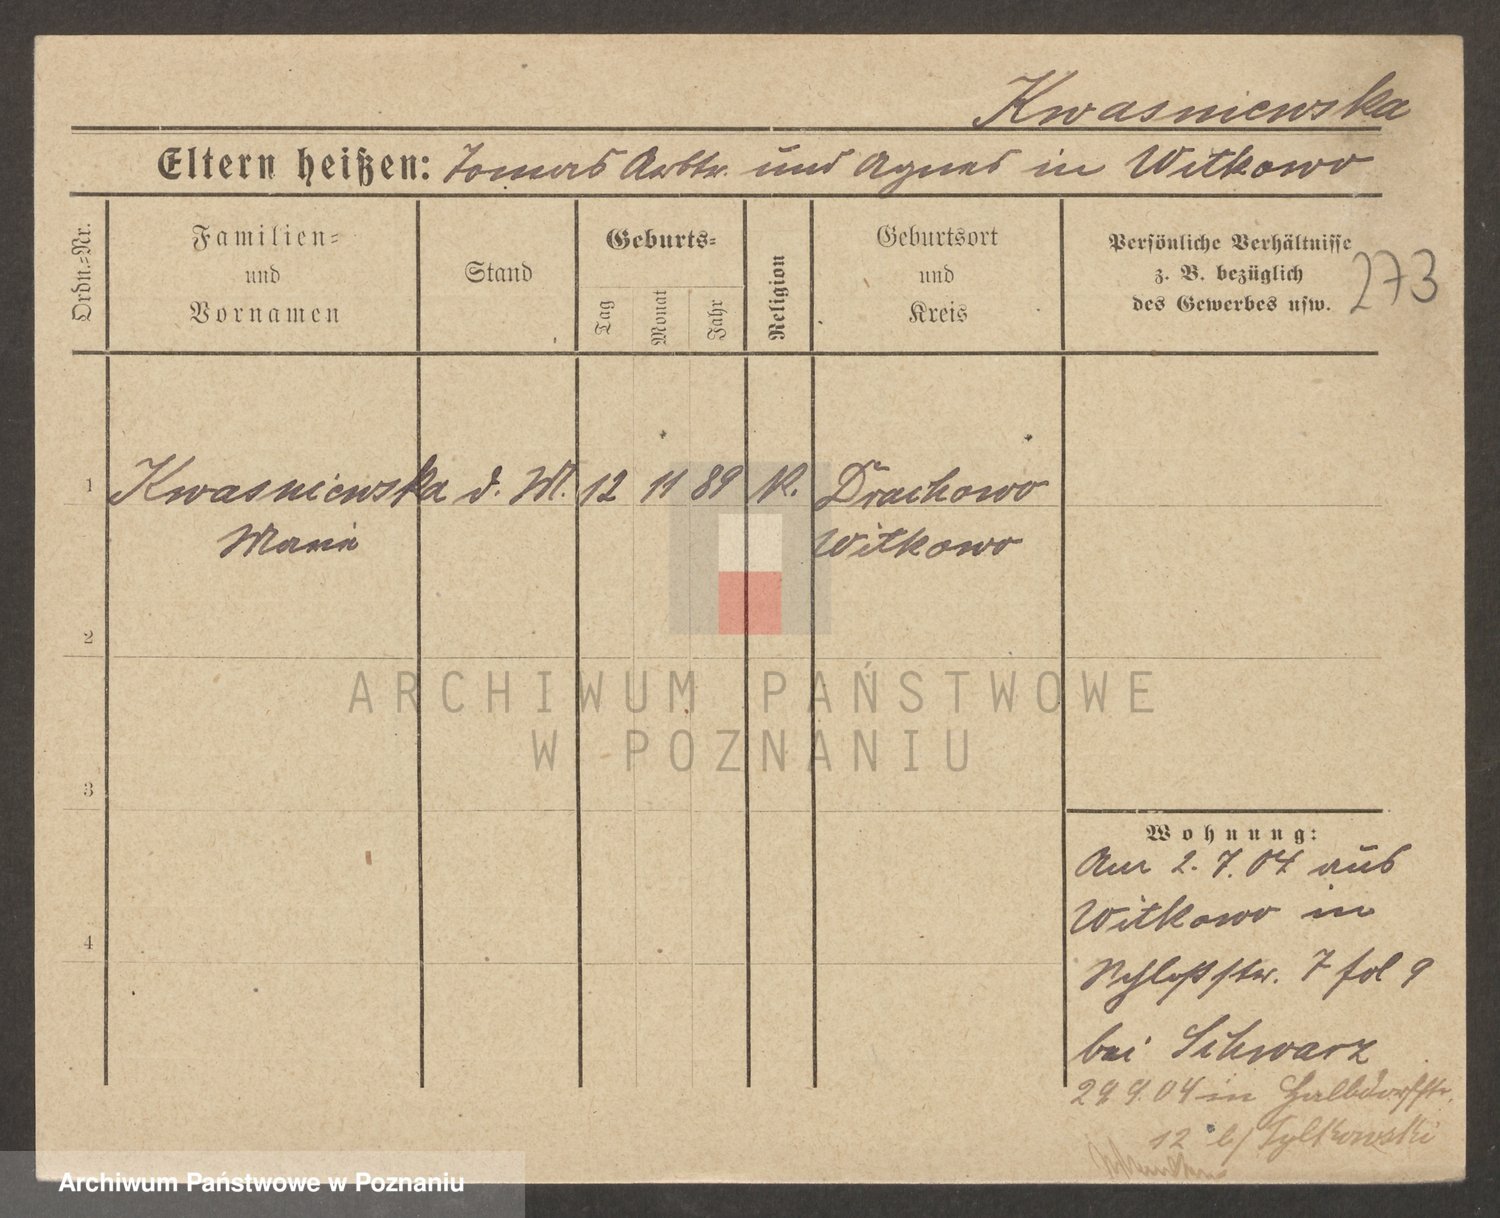 Kwasniewska
Eltern heißen: Tomas Arbtr. und Agnes in Witkowo
Ordn.=Nr.
Familien=
und
Vornamen
Stand
Geburts=
Tag
Monat
Jahr
Religion
Geburtsort
und
Kreis
Persönliche Verhältnisse
z. B. bezüglich
des Gewerbes usw.
273
1 Kwasniewska d. M. 12 11 89 K. Drachowo
Maria Witkowo
2
ARCHIWUM PAŃSTWOWE
W POZNANIU
3
Wohnung:
Am 2. 7. 04 aus
Witkowo in
4
Schloßstr. 7 fol 9
bei Schwarz
29 9. 04 in Halbdorfstr.
12 b/ Tylkowski
Archiwum Państwowe w Poznaniu